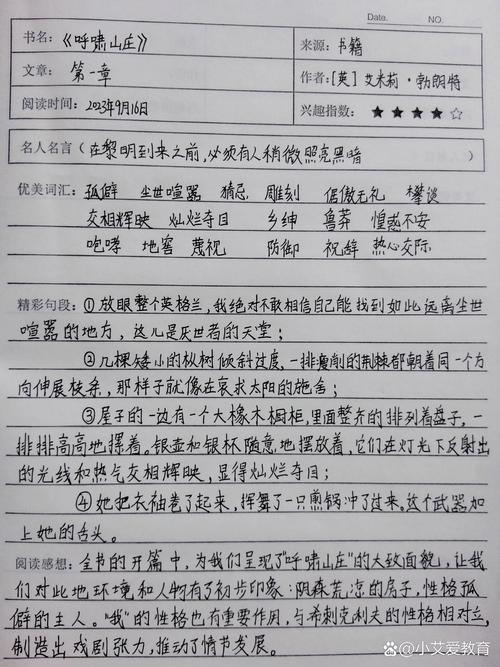 Date. NO.
书名:《呼啸山庄》 来源: 书籍
文章: 第一章 作者:[英]艾米莉·勃朗特
阅读时间: 2023年9月16日 兴趣指数: ★★★★☆
名人名言(在黎明到来之前,必须有人稍微照亮黑暗
优美词汇: 孤僻 尘世喧嚣 猜忌 雕刻 倨傲无礼 攀谈
交相辉映 灿烂夺目 乡绅 鲁莽 惶惑不安
咆哮 地窖 蔑视 防御 祝辞 热心交际
精彩句段: ①放眼整个英格兰,我绝对不敢相信自己能找到如此远离尘世
喧嚣的地方,这儿是厌世者的天堂;
②几棵矮小的枞树倾斜过度,一排瘦削的荆棘都朝着同一个方
向伸展枝条,那样子就像在哀求太阳的施舍;
③屋子的一边有一个大橡木橱柜,里面整齐的排列着盘子,一
排排高高地摞着。银壶和银杯随意地摆放着,它们在灯光下反射出
的光线和热气交相辉映,显得灿烂夺目;
④她把长袖卷了起来,挥舞了一只煎锅冲了过来。这个武器加
上她的舌头。
阅读感想: 全书的开篇中,为我们呈现了"呼啸山庄"的大致面貌,让我
们对此地环境和人物有了初步印象:阴森荒凉的房子,性格孤
僻的主人。"我"的性格也有重要作用,与希刺克利夫的性格相对立,
制造出戏剧张力,推动了情节发展。
小艾爱教育